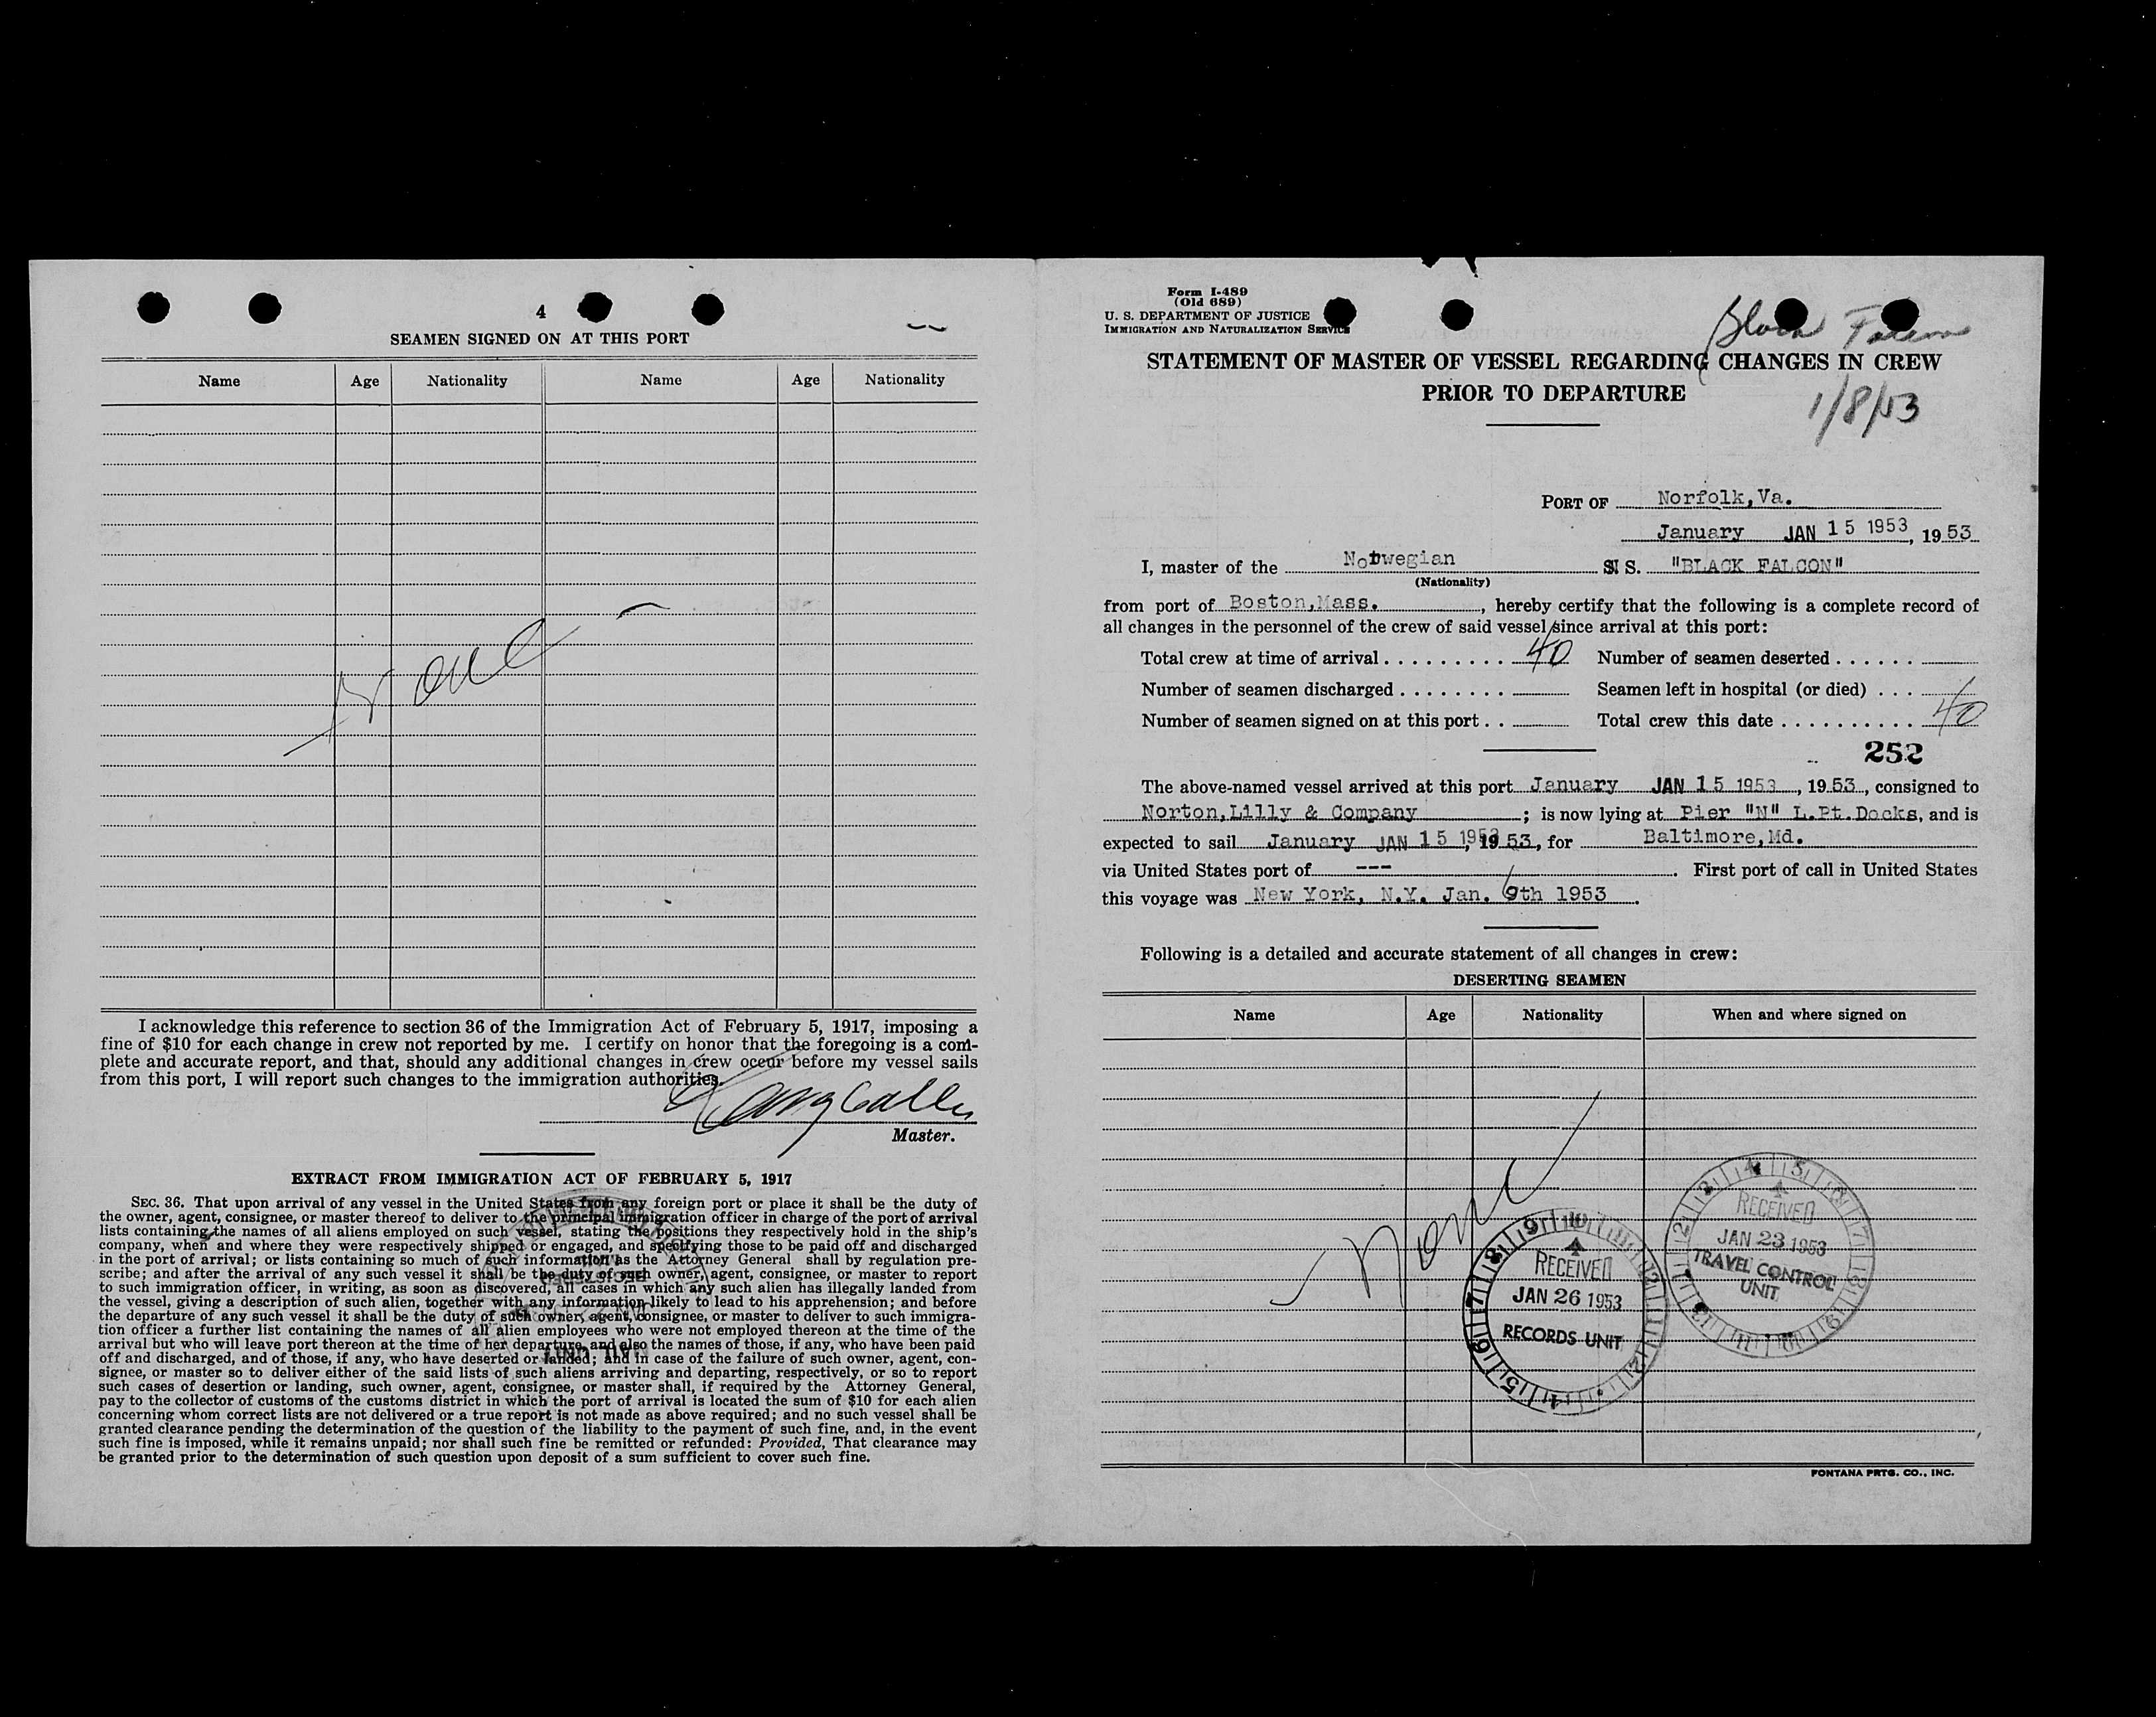 4
SEAMEN SIGNED ON AT THIS PORT
Name Age Nationality Name Age Nationality
None
I acknowledge this reference to section 36 of the Immigration Act of February 5, 1917, imposing a
fine of $10 for each change in crew not reported by me. I certify on honor that the foregoing is a com-
plete and accurate report, and that, should any additional changes in crew occur before my vessel sails
from this port, I will report such changes to the immigration authorities.
Master.
EXTRACT FROM IMMIGRATION ACT OF FEBRUARY 5, 1917
SEC. 36. That upon arrival of any vessel in the United States from any foreign port or place it shall be the duty of
the owner, agent, consignee, or master thereof to deliver to the principal immigration officer in charge of the port of arrival
lists containing the names of all aliens employed on such vessel, stating the positions they respectively hold in the ship's
company, when and where they were respectively shipped or engaged, and specifying those to be paid off and discharged
in the port of arrival; or lists containing so much of such information as the Attorney General shall by regulation pre-
scribe; and after the arrival of any such vessel it shall be the duty of such owner, agent, consignee, or master to report
to such immigration officer, in writing, as soon as discovered, all cases in which any such alien has illegally landed from
the vessel, giving a description of such alien, together with any information likely to lead to his apprehension; and before
the departure of any such vessel it shall be the duty of such owner, agent, consignee, or master to deliver to such immigra-
tion officer a further list containing the names of all alien employees who were not employed thereon at the time of the
arrival but who will leave port thereon at the time of her departure, and also the names of those, if any, who have been paid
off and discharged, and of those, if any, who have deserted or landed; and in case of the failure of such owner, agent, con-
signee, or master so to deliver either of the said lists of such aliens arriving and departing, respectively, or so to report
such cases of desertion or landing, such owner, agent, consignee, or master shall, if required by the Attorney General,
pay to the collector of customs of the customs district in which the port of arrival is located the sum of $10 for each alien
concerning whom correct lists are not delivered or a true report is not made as above required; and no such vessel shall be
granted clearance pending the determination of the question of the liability to the payment of such fine, and, in the event
such fine is imposed, while it remains unpaid; nor shall such fine be remitted or refunded: Provided, That clearance may
be granted prior to the determination of such question upon deposit of a sum sufficient to cover such fine.
Form I-489
(Old 689)
U. S. DEPARTMENT OF JUSTICE
IMMIGRATION AND NATURALIZATION SERVICE
Black Falcon
STATEMENT OF MASTER OF VESSEL REGARDING CHANGES IN CREW
PRIOR TO DEPARTURE
1/8/53
PORT OF Norfolk,Va.
January JAN 15 1953, 1953
I, master of the Norwegian S. "BLACK FALCON"
(Nationality)
from port of Boston,Mass. , hereby certify that the following is a complete record of
all changes in the personnel of the crew of said vessel since arrival at this port:
Total crew at time of arrival ......... 40 Number of seamen deserted ......
Number of seamen discharged ........ Seamen left in hospital (or died) ...
Number of seamen signed on at this port .. Total crew this date .......... 40
252
The above-named vessel arrived at this port January JAN 15 1953, 1953, consigned to
Norton,Lilly & Company ; is now lying at Pier "N" L.Pt.Docks, and is
expected to sail January JAN 15 1953, 1953, for Baltimore,Md.
via United States port of --- . First port of call in United States
this voyage was New York, N.Y. Jan. 6th 1953 .
Following is a detailed and accurate statement of all changes in crew:
DESERTING SEAMEN
Name Age Nationality When and where signed on
None
RECEIVED
JAN 26 1953
RECORDS UNIT
RECEIVED
JAN 23 1953
TRAVEL CONTROL
UNIT
FONTANA PRTG. CO., INC.